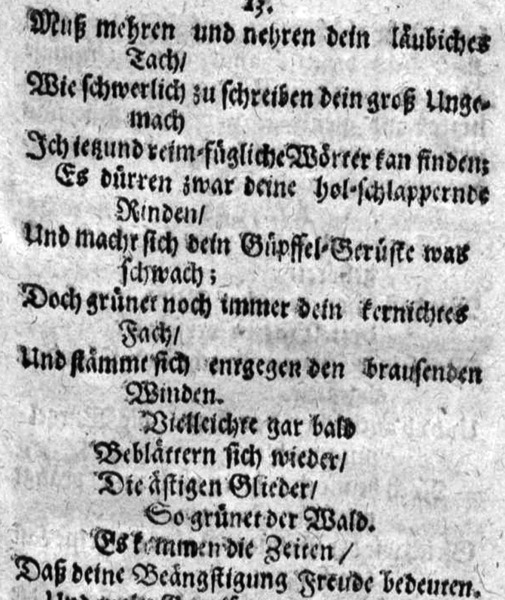 13.
Muß mehren und nehren dein läubiches
Tach/
Wie schwerlich zu schreiben dein groß Unge-
mach
Ich ietzund reim-fügliche Wörter kan finden;
Es dürren zwar deine hol-schlappernde
Rinden/
Und machr sich dein Güpffel-Gerüste was
schwach;
Doch grünet noch immer dein kernichtes
Fach/
Und stämmet sich entgegen den brausenden
Winden.
Vielleichte gar bald
Beblättern sich wieder/
Die ästigen Glieder/
So grünet der Wald.
Es kommen die Zeiten/
Daß deine Beängstigung Freude bedeuten.